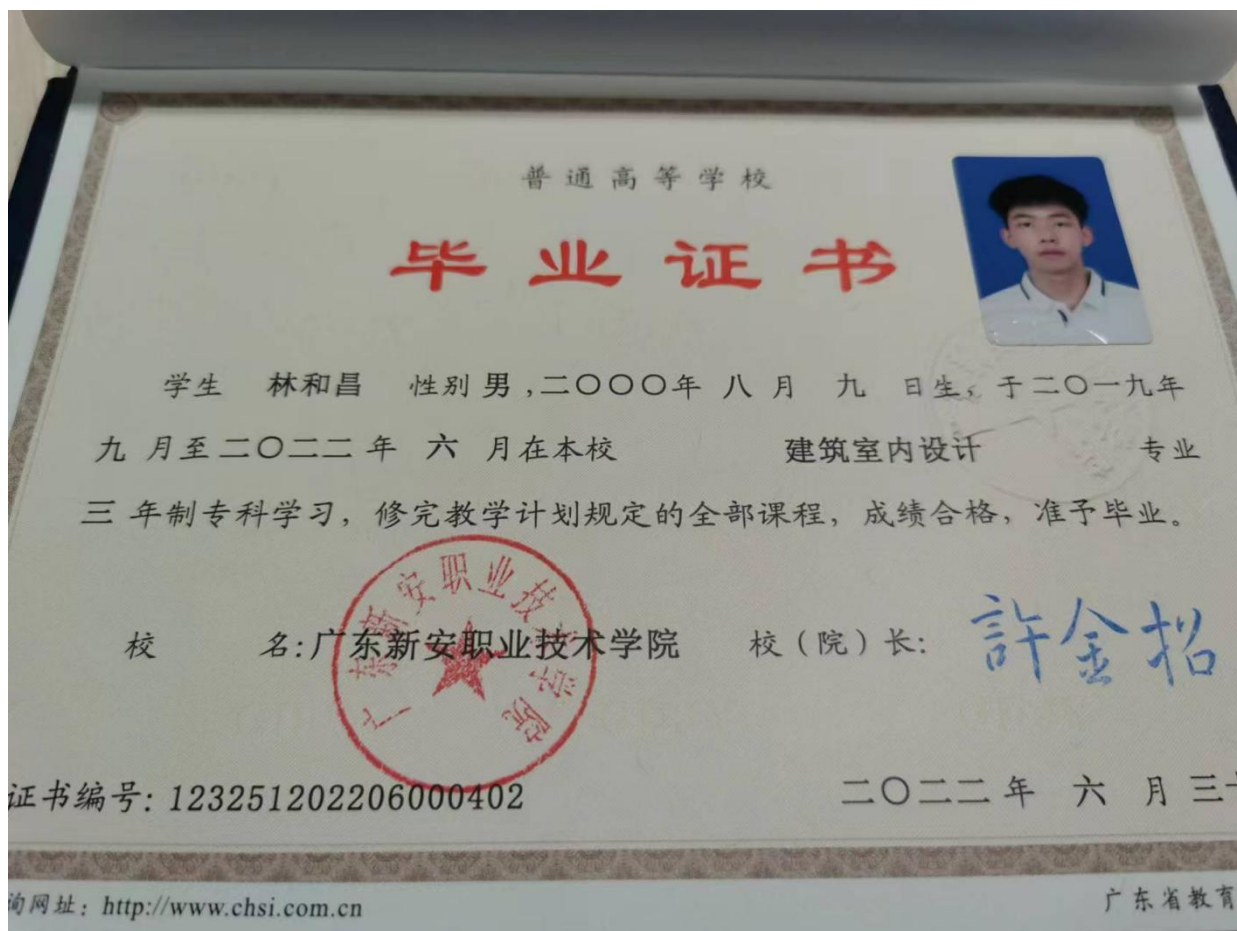 普通高等学校
毕业证书
学生 林和昌 性别 男,二〇〇〇年 八 月 九 日生,于二〇一九年
九 月至二〇二二 年 六 月在本校 建筑室内设计 专业
三 年制专科学习,修完教学计划规定的全部课程,成绩合格,准予毕业。
广东新安职业技术学院
校 名:广东新安职业技术学院 校(院)长: 許金招
证书编号: 123251202206000402 二〇二二 年 六 月 三十
询网址: http://www.chsi.com.cn 广东省教育